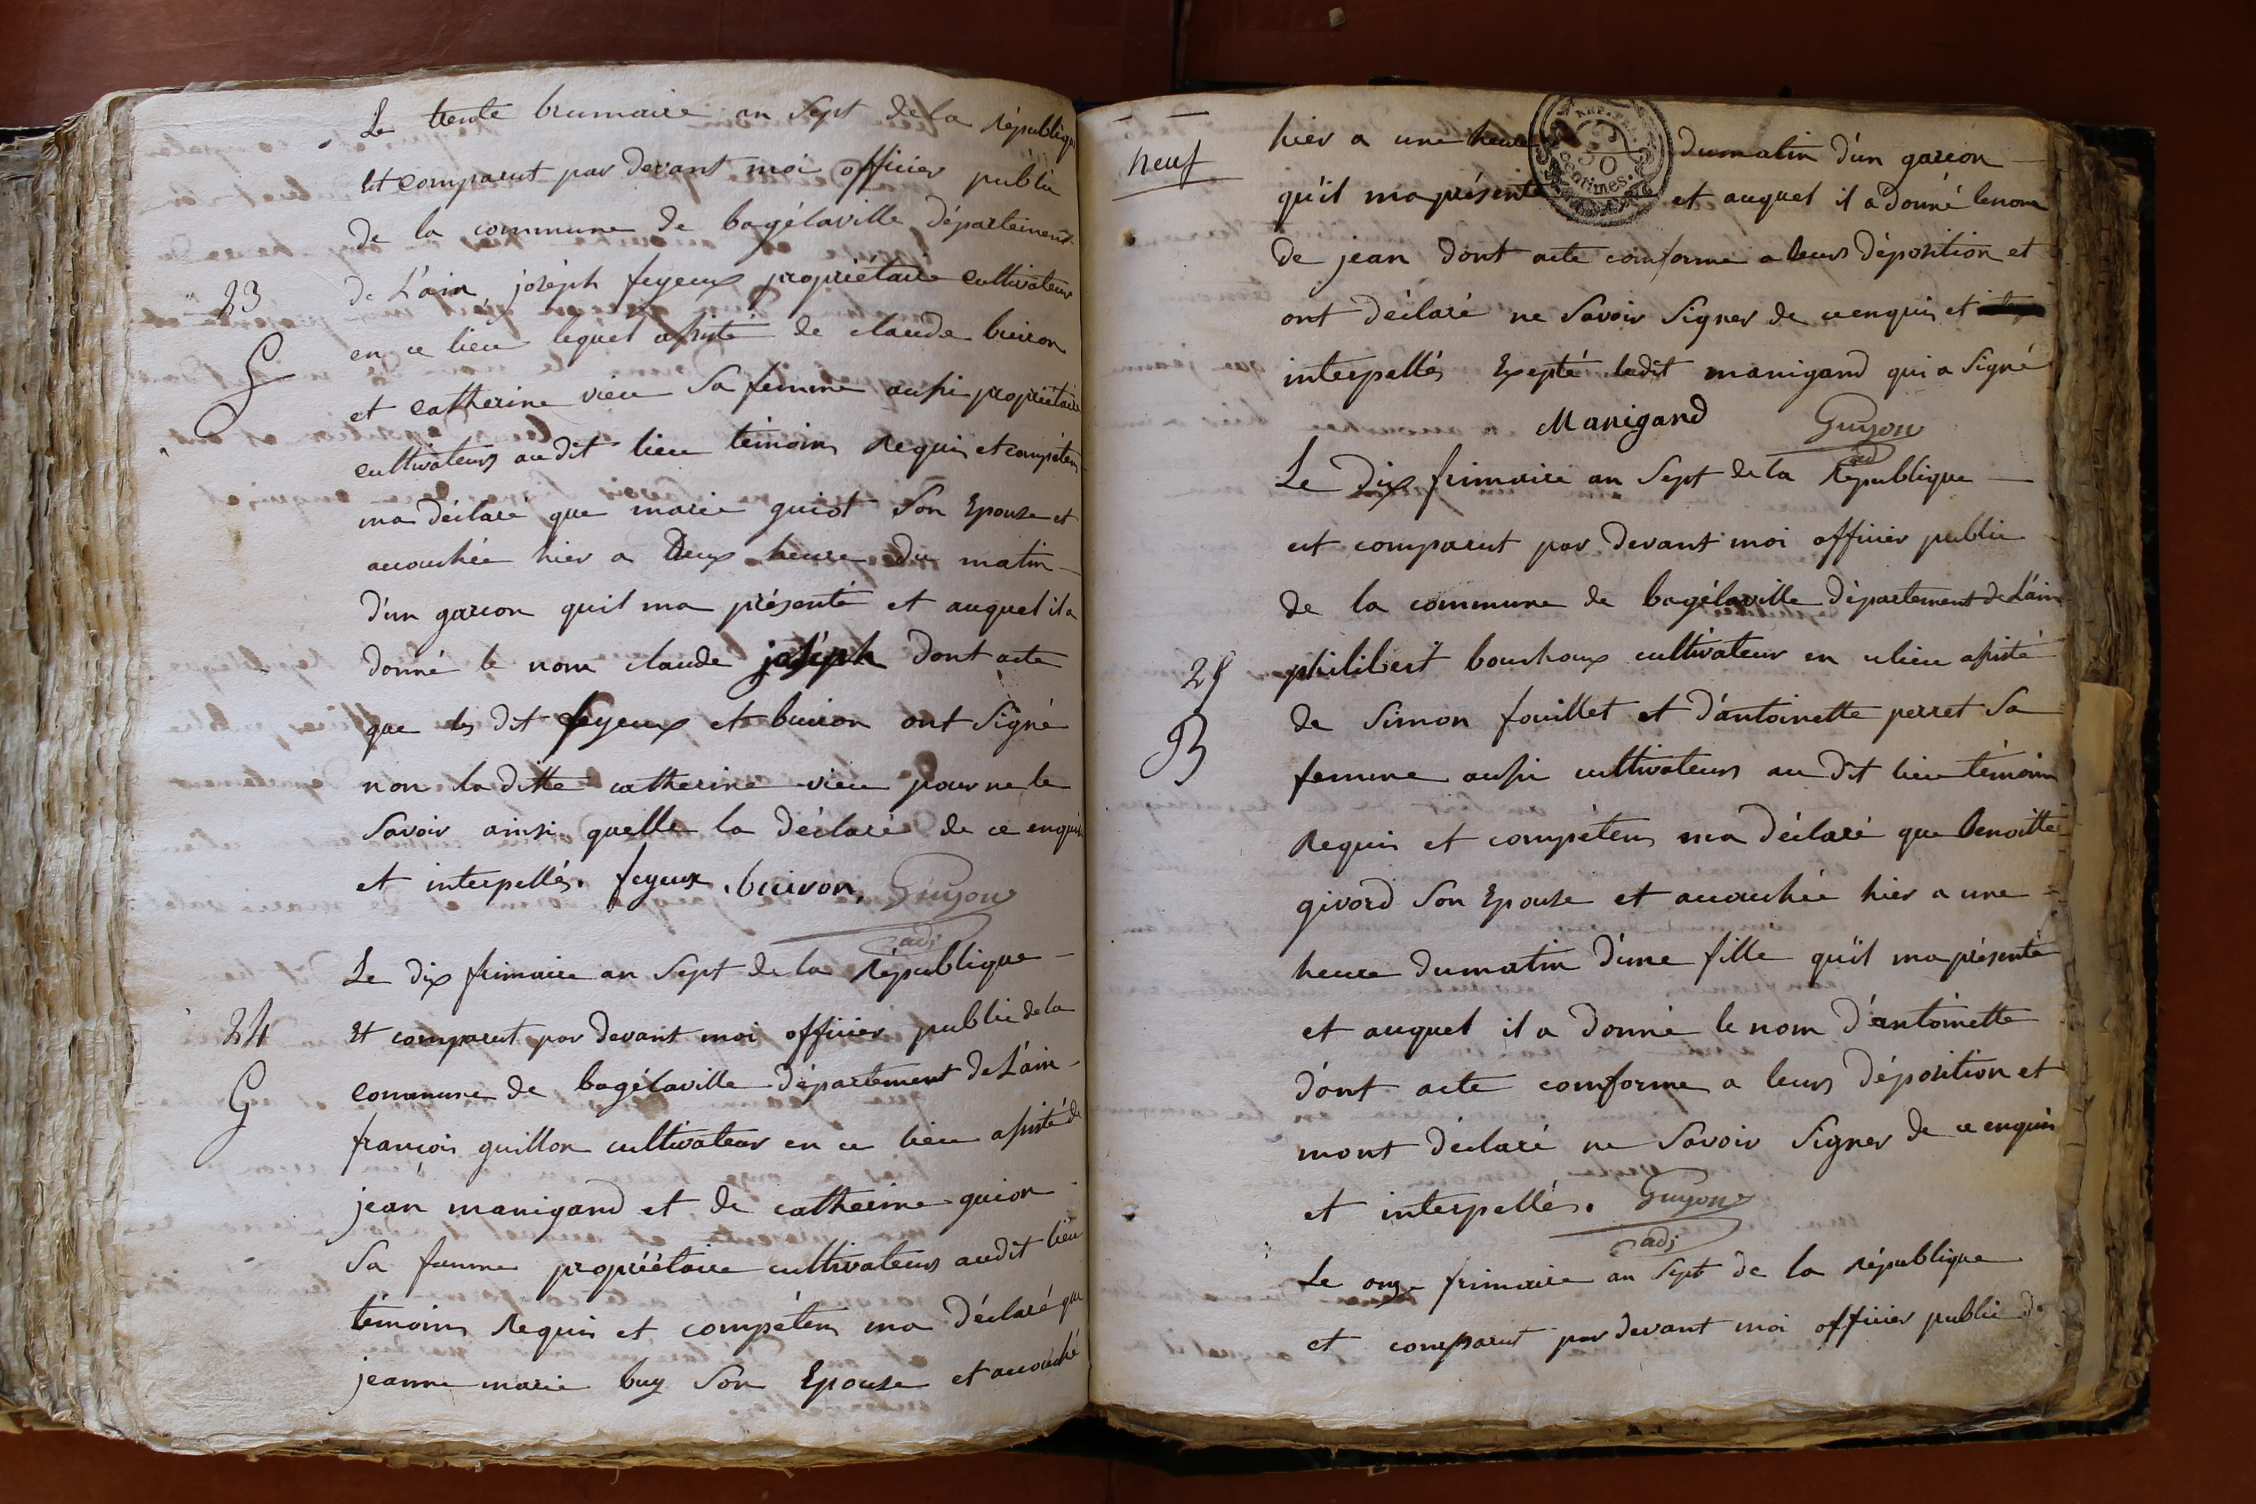 Le trente brumaire an Sept dela République
Et comparut par devant moi officier public
de la commune de bagélaville département
23
de L'ain joséph feyeux propriétaire cultivateur
en ce lieu lequel assisté de claude buiron
G
et catherine vieu Sa femme aussi propriétaire
cultivateurs audit lieu témoins Requis et compétens
ma déclaré que marie guiot Son Epouse et
accouchée hier a Deux heure du matin
d'un garcon quil ma présenté et auquel il a
donné le nom claude joséph dont acte
que les dit feyeux et buiron ont Signé
non la ditte catherine vieu pour ne le
Savoir ainsi quelle la déclaré de ce enquis
et interpellés. feyeux . buiron, Guyon
adj
Le dix frimaire an Sept de la République
24
Et comparut par devant moi officier public de la
commune de bagélaville département de L'ain
G
françois guillon cultivateur en ce lieu assisté de
jean manigand et de catherine guion
Sa famme propriétaire cultivateurs audit lieu
témoins Requis et compétens ma déclaré que
jeanne marie buy Son Epouse et accouché
neuf
hier a une heure dumatin d'un garcon
REP. FRA.
50
centimes.
qu'il ma présenté et auquel il a donné lenom
de jean dont acte comforme a leurs déposition et
ont déclaré ne Savoir Signer de ce enquis et
interpellés Exepté ledit manigand qui a Signé
Manigand Guyon
adj
Le Dix frimaire an Sept de la République
et comparut par devant moi officier public
de la commune de bagélaville département de L'ain
25
philibert bouchoux cultivateur en celieu assisté
B
de Simon fouillet et d'antoinette perret Sa
femme aussi cultivateurs au dit lieu témoins
Requis et compétens ma déclaré que Benoitte
givord Son Epouse et accouchée hier a une
heure dumatin d'une fille qu'il ma présenté
et auquel il a donné le nom d'antoinette
dont acte comforme a leurs déposition et
mont déclaré ne Savoir Signer de ce enquis
et interpellés. Guyon
adj
Le onze frimaire an Sept de la République
et comparut par devant moi officier public de